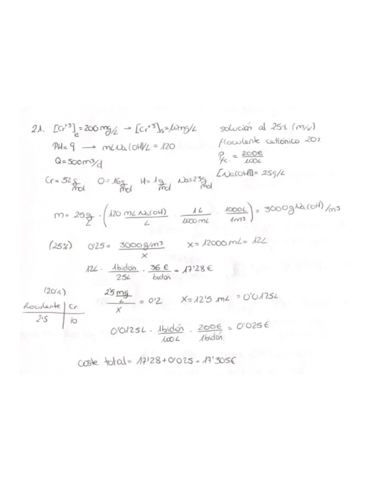 21. [Cr+3]e=200mg/L → [Cr+3]s=10mg/L solución al 25% (m/v)
PH=9 → mLNa(OH)/L = 120 floculante cationico 20%
Q=500m3/d Pfc. = 200€/100L
[Na(OH)]=25g/L
Cr=52g/mol O=16g/mol H=1g/mol Na=23g/mol
m= 25g/L · (120 mL Na(OH)/L · 1L/1000mL · 1000L/1m3) = 3000g Na(OH)/m3
(25%) 0'25 = 3000g/m3/x x=12000mL= 12L
12L · 1bidón/25L · 36€/bidón = 17'28€
(20%) 25mg/L/x = 0'2 x=12'5 mL = 0'0125L
Floculante | Cr
2'5 | 10
0'0125L · 1bidón/100L · 200€/1bidón = 0'025€
coste total= 17'28+0'025= 17'305€